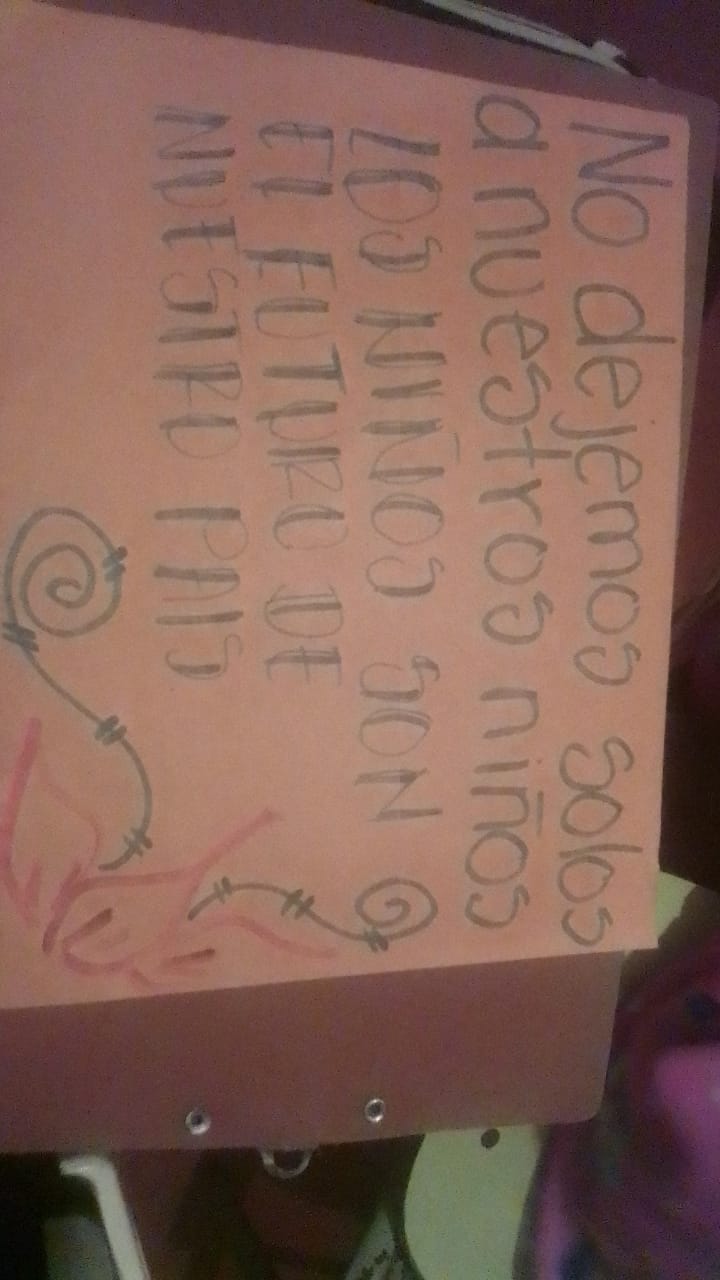 No dejemos solos
a nuestros niños
LOS NIÑOS SON
EL FUTURO DE
NUESTRO PAIS